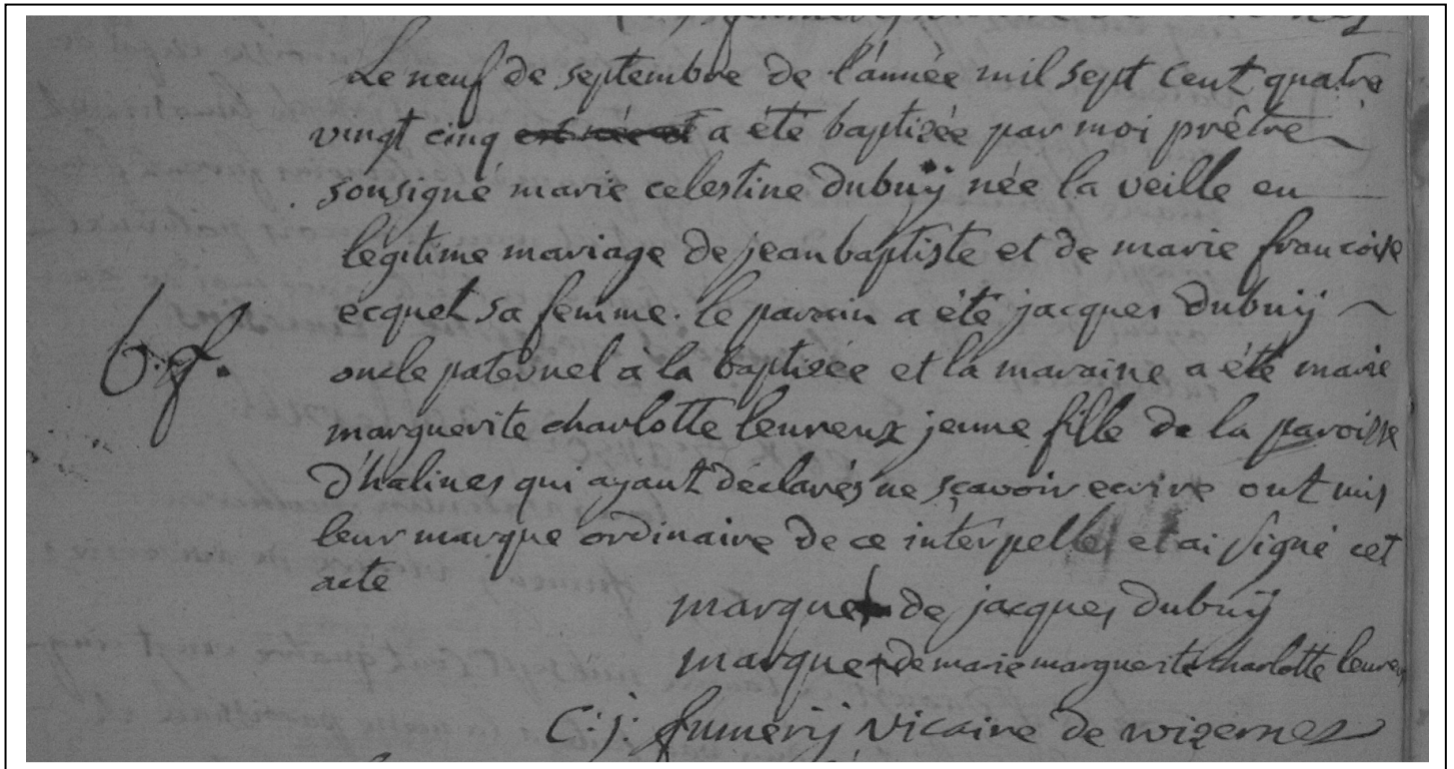 Le neuf de septembre de l'année mil sept cent quatre
vingt cinq est née et a été baptisée par moi prêtre
sousigné marie celestine dubuÿ née la veille en
légitime mariage de jean baptiste et de marie francoise
ecquet sa femme. le parain a été jacques dubuÿ
oncle paternel a la baptisée et la maraine a été marie
marguerite charlotte leureux jeune fille de la paroisse
d'halines qui ayant déclarés ne sçavoir ecrire ont mis
leur marque ordinaire de ce interpellés et ai signé cet
acte
b. f.
marque de jacques dubuÿ
marque de marie marguerite charlotte leureux
C: j: fumerÿ vicaire de wizernes